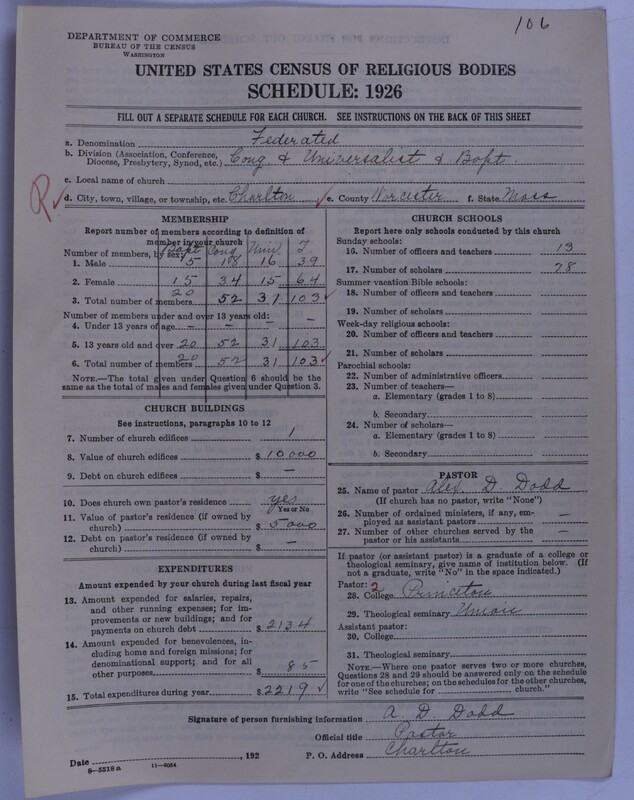 106
DEPARTMENT OF COMMERCE
BUREAU OF THE CENSUS
WASHINGTON
UNITED STATES CENSUS OF RELIGIOUS BODIES
SCHEDULE: 1926
FILL OUT A SEPARATE SCHEDULE FOR EACH CHURCH. SEE INSTRUCTIONS ON THE BACK OF THIS SHEET
a. Denomination Federated
b. Division (Association, Conference, Diocese, Presbytery, Synod, etc.) Cong. & Universalist & Bapt.
c. Local name of church
d. City, town, village, or township, etc. Charlton e. County Worcester f. State Mass
MEMBERSHIP
Report number of members according to definition of
member in your church
Bapt Cong Univ. T
Number of members, by sex:
1. Male 5 18 16 39
2. Female 15 34 15 64
3. Total number of members 20 52 31 103
Number of members under and over 13 years old:
4. Under 13 years of age – – – –
5. 13 years old and over 20 52 31 103
6. Total number of members 20 52 31 103
NOTE.—The total given under Question 6 should be the
same as the total of males and females given under Question 3.
CHURCH BUILDINGS
See instructions, paragraphs 10 to 12
7. Number of church edifices 1
8. Value of church edifices $ 10000
9. Debt on church edifices $ —
10. Does church own pastor's residence yes
Yes or No
11. Value of pastor's residence (if owned by
church) $ 5000
12. Debt on pastor's residence (if owned by
church) $ —
EXPENDITURES
Amount expended by your church during last fiscal year
13. Amount expended for salaries, repairs,
and other running expenses; for im-
provements or new buildings; and for
payments on church debt $ 2134
14. Amount expended for benevolences, in-
cluding home and foreign missions; for
denominational support; and for all
other purposes $ 85
15. Total expenditures during year $ 2219
CHURCH SCHOOLS
Report here only schools conducted by this church
Sunday schools:
16. Number of officers and teachers 13
17. Number of scholars 78
Summer vacation Bible schools:
18. Number of officers and teachers
19. Number of scholars
Week-day religious schools:
20. Number of officers and teachers
21. Number of scholars
Parochial schools:
22. Number of administrative officers
23. Number of teachers—
a. Elementary (grades 1 to 8)
b. Secondary
24. Number of scholars—
a. Elementary (grades 1 to 8)
b. Secondary
PASTOR
25. Name of pastor Alex. D. Dodd
(If church has no pastor, write "None")
26. Number of ordained ministers, if any, em-
ployed as assistant pastors —
27. Number of other churches served by the
pastor or his assistants —
If pastor (or assistant pastor) is a graduate of a college or
theological seminary, give name of institution below. (If
not a graduate, write "No" in the space indicated.)
Pastor: 2
28. College Princeton
29. Theological seminary Union
Assistant pastor:
30. College
31. Theological seminary
NOTE.—Where one pastor serves two or more churches,
Questions 28 and 29 should be answered only on the schedule
for one of the churches; on the schedules for the other churches,
write "See schedule for church."
Signature of person furnishing information A. D. Dodd
Official title Pastor
Date , 192 P. O. Address Charlton
8—5518a 11—9034